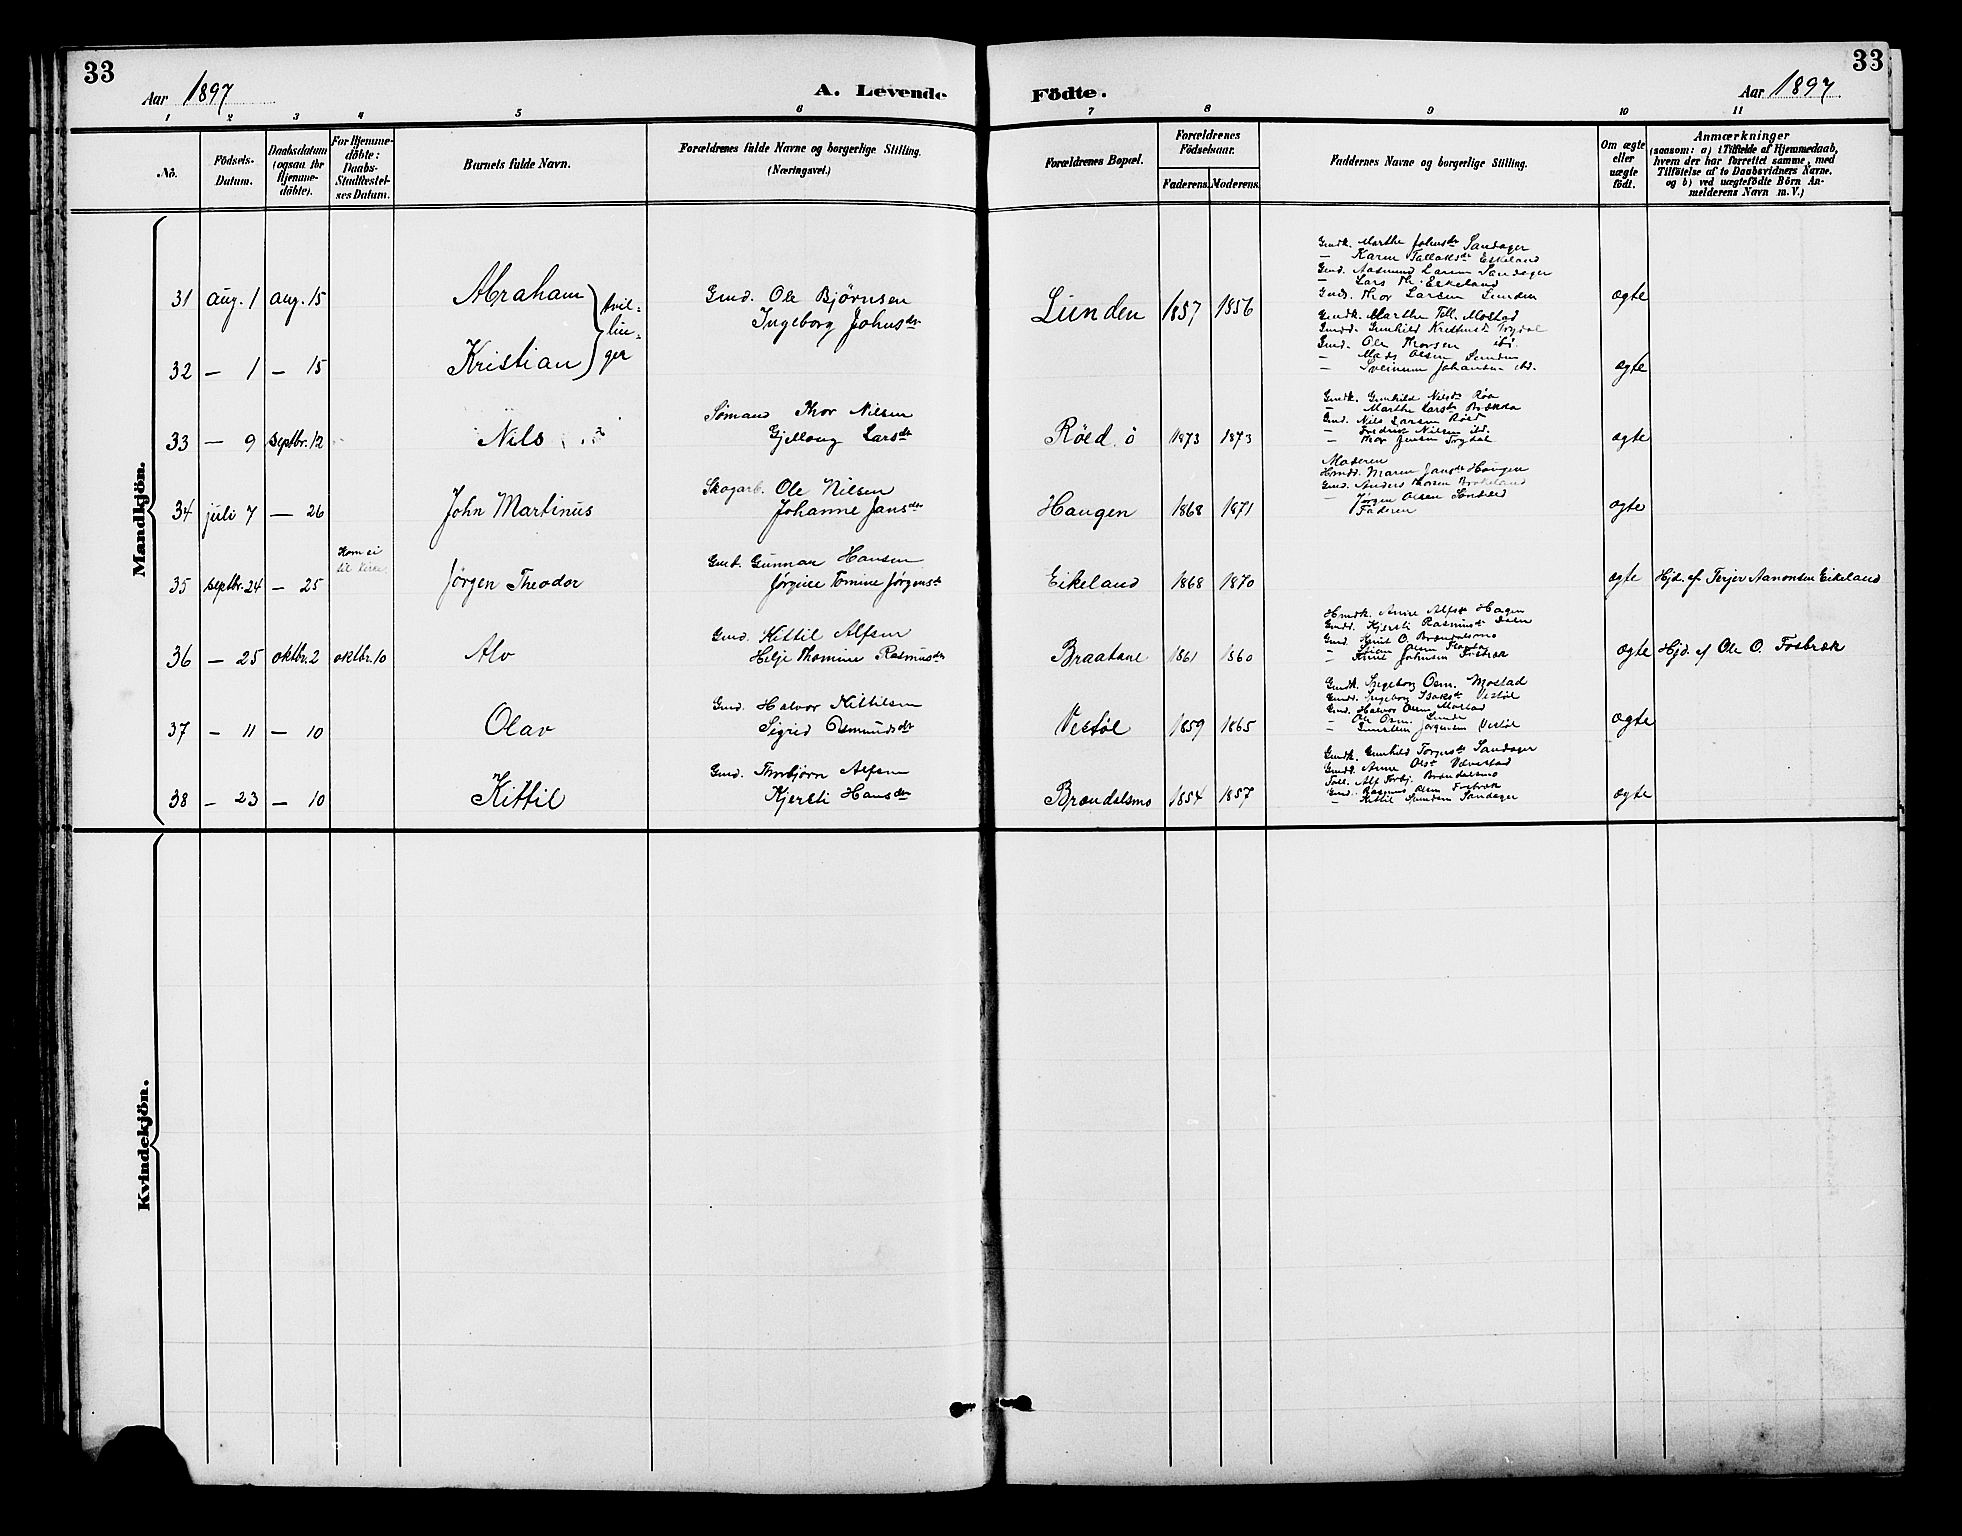 33
Aar 1897
A. Levende
Födte.
Aar 1897
33
1 2 3 4 5 6 7 8 9 10 11
No.
Födsels-
Datum.
Daabsdatum
(ogsaa for
Hjemme-
döbte).
For Hjemme-
döbte:
Daabs-
Stadfæstel-
ses Datum.
Barnets fulde Navn.
Forældrenes fulde Navne og borgerlige Stilling.
(Næringsvei.)
Forældrenes Bopæl.
Forældrenes
Födselsaar.
Faderens. Moderens.
Faddernes Navne og borgerlige Stilling.
Om ægte
eller
uægte
födt.
Anmærkninger
(saasom: a) i Tilfælde af Hjemmedaab,
hvem der har forrettet samme, med
Tilföielse af to Daabsvidners Navne,
og b) ved uægtefödte Börn An-
melderens Navn m. V.)
Mandkjön.
31 aug. 1 aug. 15 Abraham
tvil-
lin-
ger
Gmd. Ole Bjørnsen
Ingeborg Johnsdtr
Lunden 1857 1856
Gmdk. Marthe Johnsdtr Sandager
— Karen Tallaksdtr Eskeland
Gmd. Aasmund Larsen Sandager
— Lars Th. Eskeland
Gmd. Thor Larsen Lunden
ægte
32 — 1 — 15 Kristian
Gmdk. Marthe Tell. Mostad
Gmdd. Gunhild Kristensd. Trydal
Gmd. Ole Thorsen ibd.
— Mads Olsen Lunden
— Sveinum Johansen ibd.
ægte
33 — 9 septbr. 12 Nils
Sømand Thor Nilsen
Gjellaug Larsdtr
Röed. ö 1873 1873
Gmdk. Gunhild Nilsdtr Röa
— Marthe Larsdtr Brekka
Gmd. Nils Larsen Röed
— Fredrik Nilsen ibd.
— Thor Jensen Trydal
ægte
34 juli 7 — 26 John Martinus
Skogarb. Ole Nilsen
Johanne Jansdtr
Haugen 1868 1871
Moderen
Hmdd. Maren Jansdtr Haugen
Gmd. Anders Thorsen Brekeland
— Jørgen Olsen
Faderen
ægte
35 septbr. 24 — 25
Kom ei
til Kirke.
Jørgen Theodor
Gmd. Gunnar Hansen
Jørgine Tomine Jørgensdtr
Eikeland 1868 1870 ægte Hjd. af Terjer Aanonsen Eikeland
36 — 25 oktbr. 2 oktbr. 10 Alv
Gmd. Kittil Alfsen
Helje Thomine Rasmusdtr
Braatane 1861 1860
Hmdk. Anne Alfsdtr Hagen
Gmdd. Kjersti Rasmusdtr
Gmd. Knut O. Brændalsmo
— Knut Johnsen Fosbræk
ægte Hjd. af Ole O. Fosbræk
37 — 11 — 10 Olav
Gmd. Halvor Kittilsen
Sigrid Osmundsdtr
Vestöl 1859 1865
Gmdk. Ingeborg Osm. Mostad
Gmdd. Ingeborg Isaksdtr Vestöl
Gmd. Halvor Osm. Mostad
— Ole Osm. Lunde
— Gunsten Jørgensen Vestöl
ægte
38 — 23 — 10 Kittil
Gmd. Thorbjørn Alfsen
Kjersti Hansdtr
Brændalsmo 1854 1857
Gmdk. Gunhild Torjusdtr Sandager
Gmdd. Anne Olsdtr Vævestad
Fall. Alf Torbj. Brændalsmo
Gmd. Rasmus Olsen Fosbræk
— Kittil Sandager
ægte
Kvindekjön.